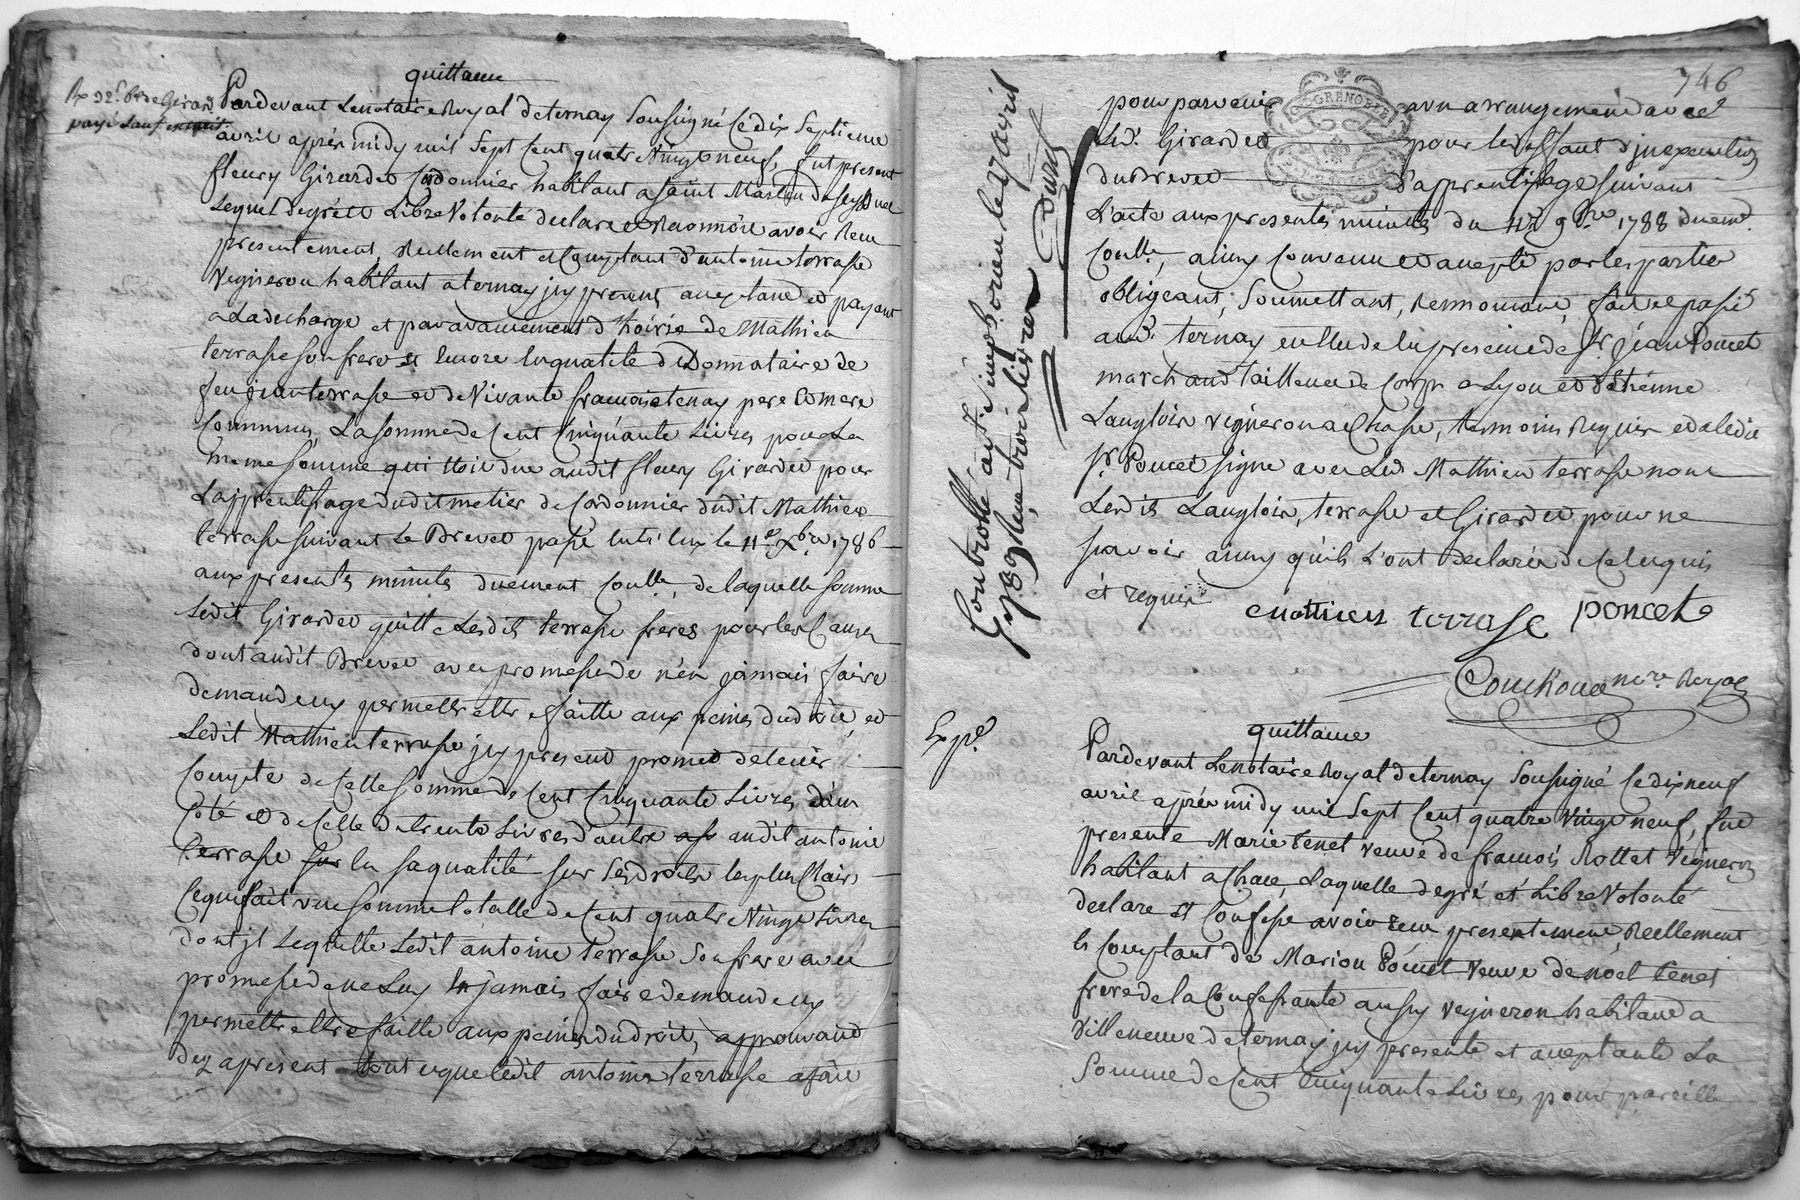 quittance
Rx 32s. de Girard
payé sauf
Pardevant Lenotaire Royal deternay Soussigné Cedix Septieme
avril après midy mil Sept Cent quatre Vingt neuf, fut present
fleury Girardet Cordonnier habitant a saint Martin de
Lequel degré et Libre Volonté declare et avoir Receu
presentement, Reellement et Comptant d'antoine terrasse
Vigneron habitant a ternay jcy present acceptant et payant
a La decharge et par avancement d'hoirie de Mathieu
terrasse son frere et Encore En qualité de Donnataire de
feu jean terrasse et de Vivante francoise tenay pere Et mere
Communs, La somme de Cent Cinquante Livres pour La
meme somme qui Etoit due audit fleury Girardet pour
L'apprentissage dudit metier de Cordonnier dudit Mathieu
terrasse suivant Le Brevet passé Entr'Eux le 11e Xbre 1786
aux presentes minutes duement Conllé, de laquelle somme
Ledit Girardet quitte Lesdits terrasse freres pour les Causes
dont audit Brevet avec promesse de n'en jamais faire
demande ny permettre Etre faitte aux peines du droit, et
Ledit Mathieu terrasse jcy present promet de tenir
Compte de Cette somme de Cent Cinquante Livres d'un
Coté et de Celle de trente Livres d'autre audit antoine
terrasse en sa qualité sur Ses droits les plus Clairs
Ce qui fait une somme totalle de Cent quatre Vingt Livres
dont jl Lequitte Ledit antoine terrasse Son frere avec
promesse de ne Luy En jamais faire demande ny
permettre Etre faitte aux peines du droit, approuvant
dez apresent tout ce que ledit antoine terrasse a fait
746
pour parvenir a un arrangement avec
Led. Girardet pour le deffaut d'jnexecution
du Brevet d'apprentissage suivant
L'acte aux presentes minutes du 9bre 1788 duemt.
Conllé, ainsy Convenu et accepté par les parties
obligeant, Soumettant, Renoncant, fait et passé
aud. ternay en Etude En presence de Sr. jean Poncet
marchand tailleur de Corps a Lyon et d'Etienne
Langlois vigneron a Chasse, temoins Requis et a ledit
Sr. Poncet signé avec Led. Mathieu terrasse non
Lesdits Langlois, terrasse et Girardet pour ne
scavoir ainsy qu'ils L'ont declaré de Ce Enquis
et requis
mathieu terrase poncet
Couchoud nore. Royal
Controllé a St. simphorien le avril
1789. Reçu trois livres
Expé.
quittance
Pardevant Lenotaire Royal de ternay Soussigné Cedixneuf
avril après midy mil Sept Cent quatre Vingt neuf, fut
presente Marie tenet veuve de francois Rottat Vigneron
habitant a Chasse, Laquelle degré et Libre Volonté
declare et Confesse avoir receu presentement, Reellement
Et Comptant de Marion Poncet veuve de Noel tenet
frere de la Confessante aussy vigneron habitant a
Villeneuve de ternay jcy presente et acceptante La
Somme de Cent Cinquante Livres, pour pareille
GRENOBLE